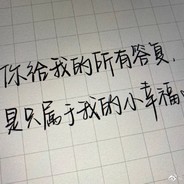 你给我的所有答复,
是只属于我的小幸福。